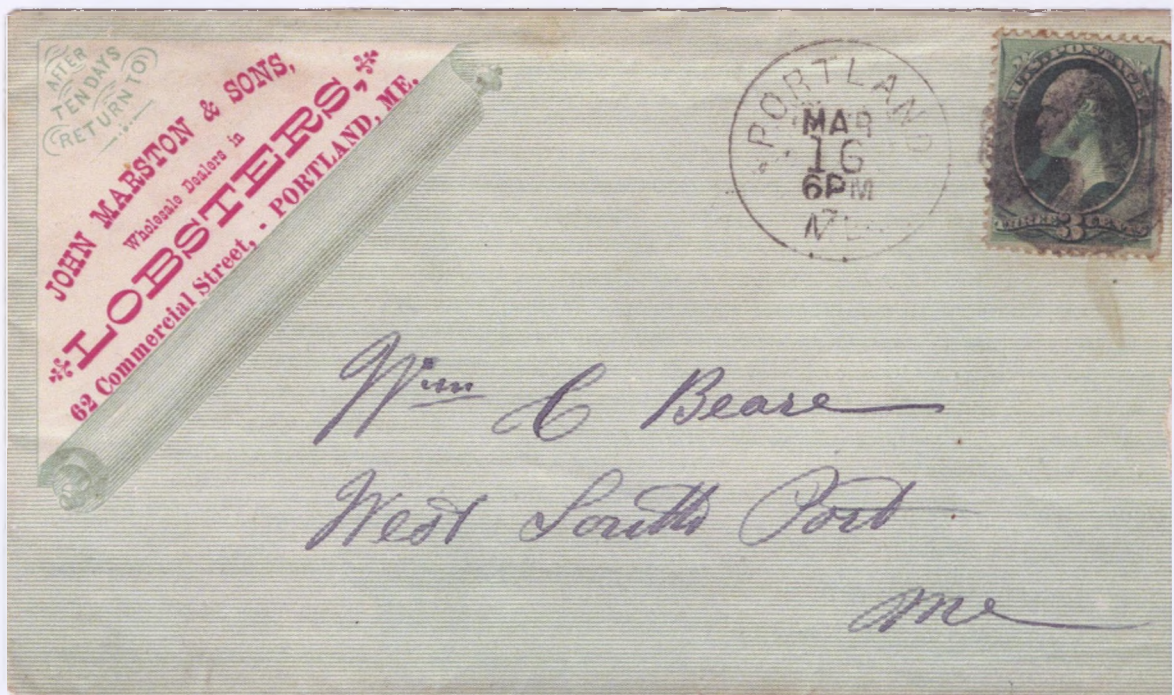 AFTER
TEN DAYS
RETURN TO
JOHN MARSTON & SONS,
Wholesale Dealers in
LOBSTERS,
62 Commercial Street, . PORTLAND, ME.
PORTLAND
MAR
16
6PM
ME.
U.S. POSTAGE
THREE 3 CENTS
Wm C Beare
West South Port
Me